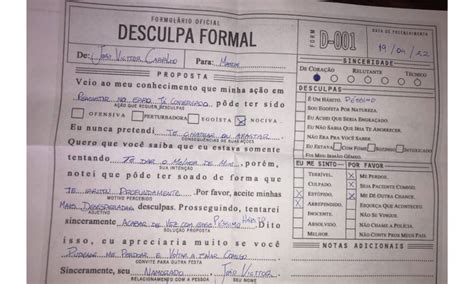 FORMULÁRIO OFICIAL
DESCULPA FORMAL
FORM
D-001
DATA DE PREENCHIMENTO
19/04/12
De: João Victtor Carvalho Para:
PROPOSTA
Veio ao meu conhecimento que minha ação em
pôde ter sido
AÇÃO QUE REQUER DESCULPAS
OFENSIVA PERTURBADORA EGOÍSTA NOCIVA
Eu nunca pretendi Te
CONSEQUÊNCIAS DE SUAS AÇÕES
Quero que você saiba que eu estava somente
tentando Te dar o melhor de mim, porém,
SUA INTENÇÃO
notei que pôde ter soado de forma que
Te irritou profundamente. Por favor, aceite minhas
MOTIVO PERCEBIDO
mais desesperadas desculpas. Prosseguindo, tentarei
ADJETIVO
sinceramente acabar de vez com esse péssimo hábito
SOLUÇÃO PROPOSTA
dito isso, eu apreciaria muito se você
pudesse me perdoar e voltar a comigo
CONVITE PARA OUTRA FESTA
Sinceramente, seu namorado João Victtor
RELACIONAMENTO COM A PESSOA SEU NOME
SINCERIDADE
De Coração Relutante Técnico
DESCULPAS
É um Hábito. Péssimo
Sou Egoísta por Natureza.
Eu Achei que Seria Engraçado.
Eu Não Sabia que Iria te Aborrecer.
Não Era pra Você Saber.
Estou Emocionalmente
Foi um Simples Erro.
EU ME SINTO E POR FAVOR
Terrível. Me Perdoe.
Estúpido. Seja Paciente Comigo.
Mal. Me Dê Outra Chance.
Arrependido. Esqueça que Aconteceu.
Inocente. Não se Vingue.
Não Chame a Polícia.
Não Conte pra Ninguém.
NOTAS ADICIONAIS